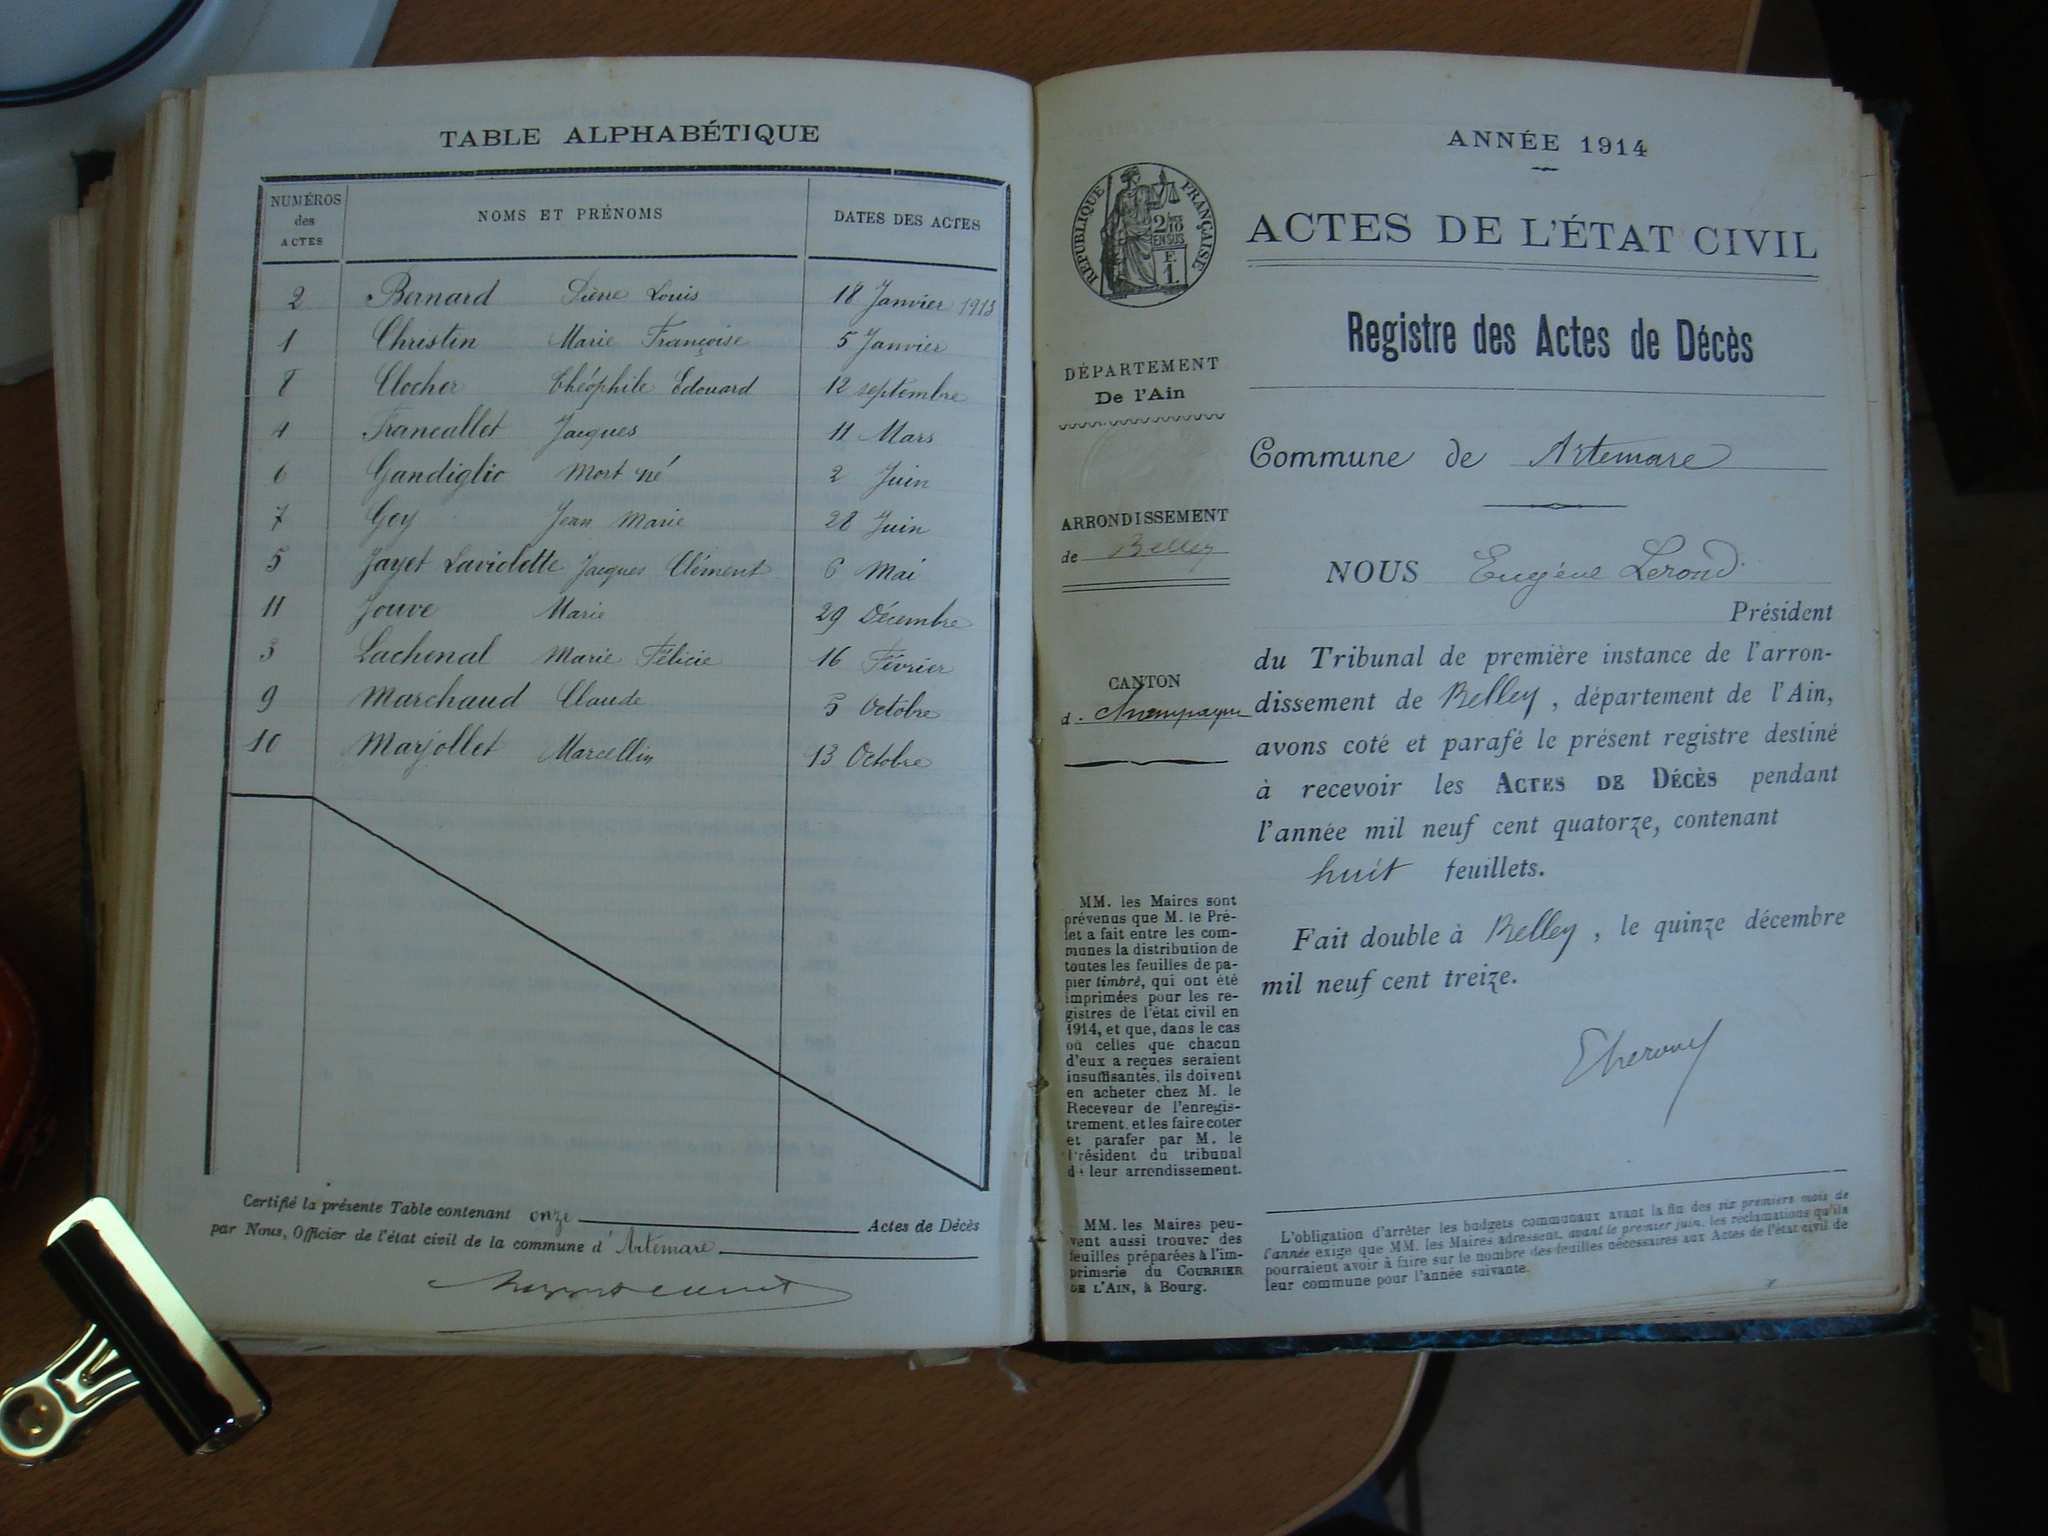 TABLE ALPHABÉTIQUE
NUMÉROS des ACTES NOMS ET PRÉNOMS DATES DES ACTES
2 Bernard Louis 18 Janvier 1913
1 Christin Marie Françoise 5 Janvier
8 Clocher Théophile Edouard 12 septembre
4 Francallet Jacques 11 Mars
6 Gandiglio Mort né 2 Juin
7 Goy Jean Marie 28 Juin
5 Jayet Laviolette Jacques Clément 6 Mai
11 Jouve Marie 29 Décembre
3 Lachenal Marie Félicie 16 Février
9 Marchaud Claude 5 Octobre
10 Marjollet Marcellin 13 Octobre
Certifié la présente Table contenant onze Actes de Décès
par Nous, Officier de l'état civil de la commune d'Artemare
ANNÉE 1914
RÉPUBLIQUE FRANÇAISE
2/10
EN SUS
F.
1.
ACTES DE L'ÉTAT CIVIL
Registre des Actes de Décès
DÉPARTEMENT
De l'Ain
ARRONDISSEMENT
de Belley
CANTON
d. Champagne
MM. les Maires sont
prévenus que M. le Pré-
fet a fait entre les com-
munes la distribution de
toutes les feuilles de pa-
pier timbré, qui ont été
imprimées pour les re-
gistres de l'état civil en
1914, et que, dans le cas
où celles que chacun
d'eux a reçues seraient
insuffisantes, ils doivent
en acheter chez M. le
Receveur de l'enregis-
trement, et les faire coter
et parafer par M. le
Président du tribunal
de leur arrondissement.
MM. les Maires peu-
vent aussi trouver des
feuilles préparées à l'im-
primerie du COURRIER
DE L'AIN, à Bourg.
Commune de Artemare
NOUS Eugène Lerond
Président
du Tribunal de première instance de l'arron-
dissement de Belley, département de l'Ain,
avons coté et parafé le présent registre destiné
à recevoir les ACTES DE DÉCÈS pendant
l'année mil neuf cent quatorze, contenant
huit feuillets.
Fait double à Belley, le quinze décembre
mil neuf cent treize.
L'obligation d'arrêter les budgets communaux avant la fin des six premiers mois de
l'année exige que MM. les Maires adressent, avant le premier juin, les réclamations qu'ils
pourraient avoir à faire sur le nombre des feuilles nécessaires aux Actes de l'état civil de
leur commune pour l'année suivante.